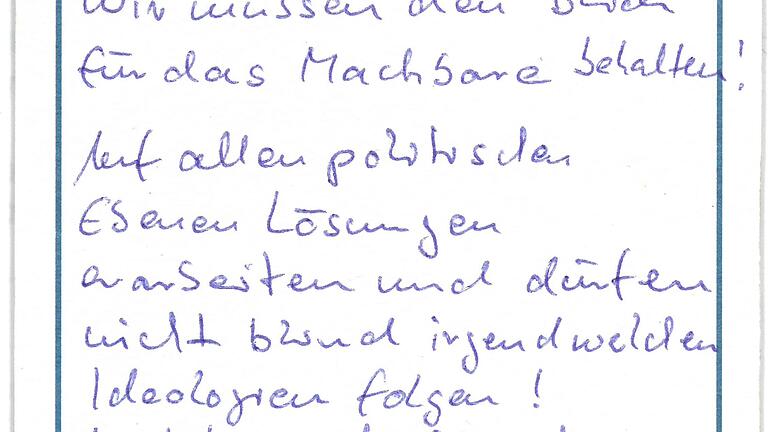 Wir müssen den Blick
für das Machbare behalten!
Auf allen politischen
Ebenen Lösungen
erarbeiten und dürfen
nicht blind irgendwelchen
Ideologien folgen!